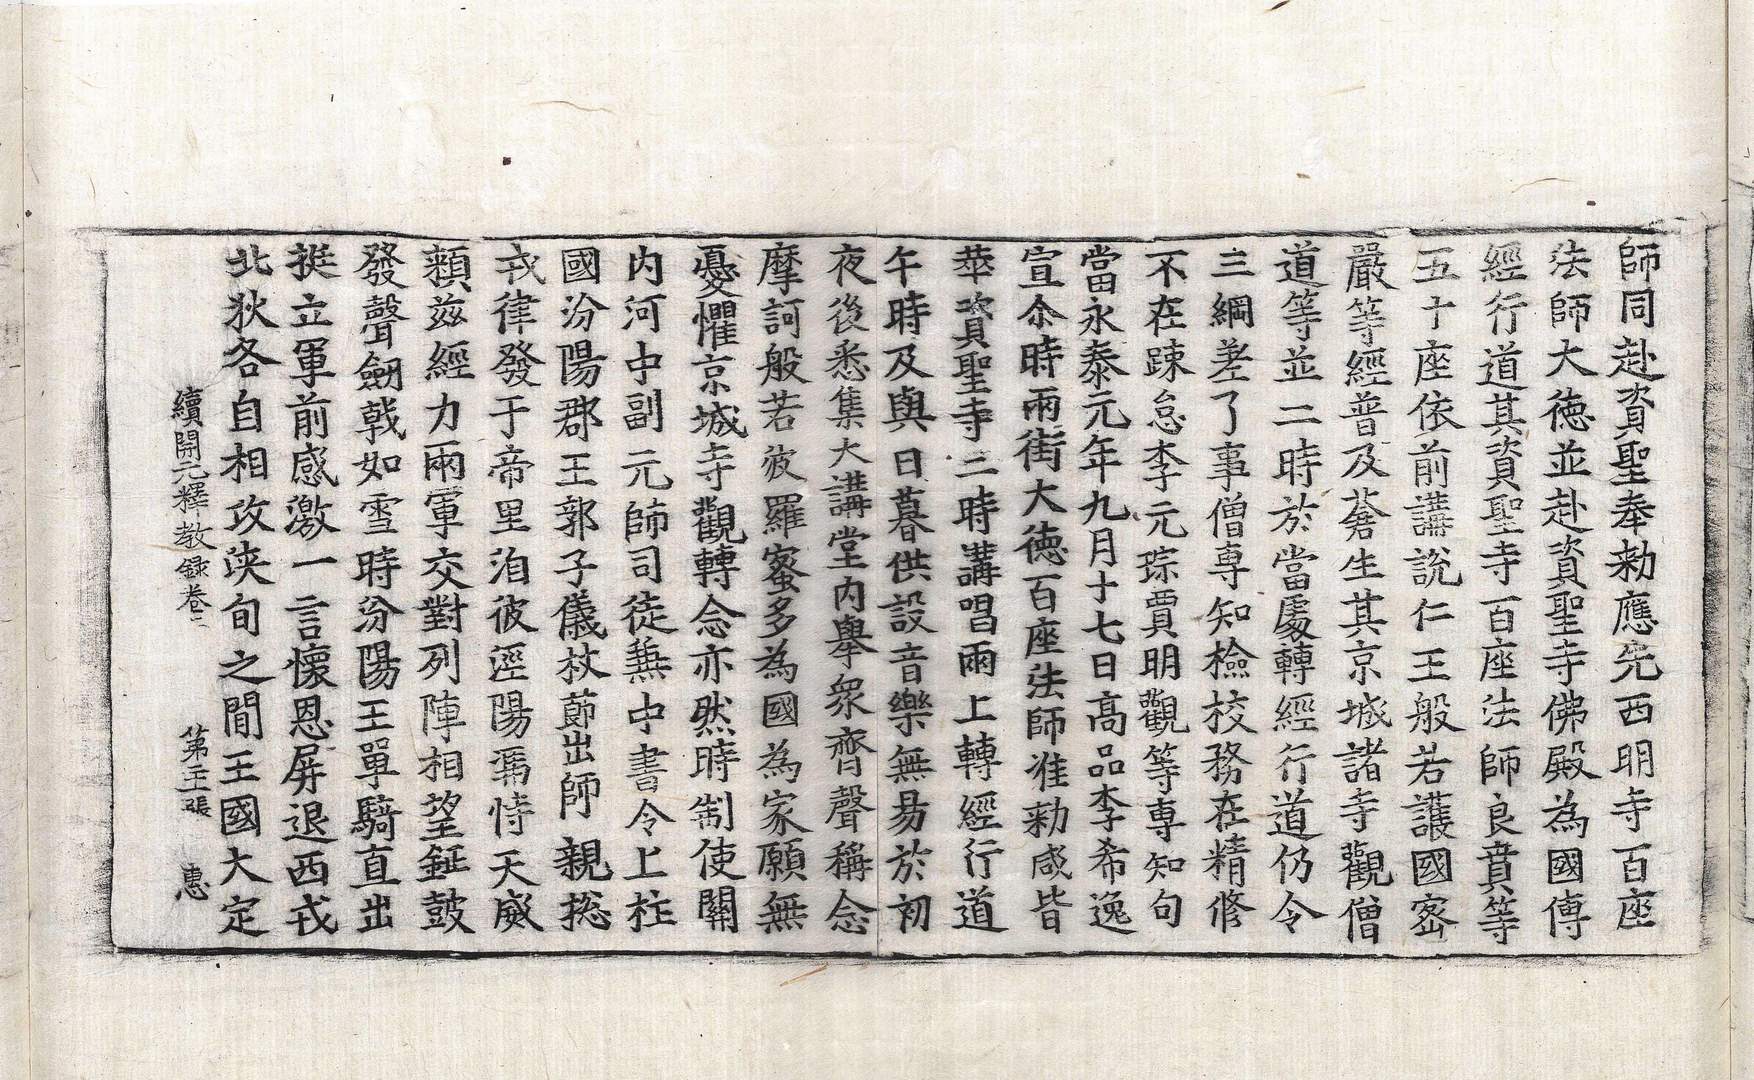 師同赴資聖奉勅應先西明寺百座
法師大德並赴資聖寺佛殿為國傳
經行道其資聖寺百座法師良賁等
五十座依前講說仁王般若護國密
嚴等經普及蒼生其京城諸寺觀僧
道等並二時於當處轉經行道仍令
三綱差了事僧專知檢校務在精修
不在踈怠李元琮賈明觀等專知句
當永泰元年九月十七日高品李希逸
宣尒時兩街大德百座法師准勅咸皆
萃資聖寺二時講唱兩上轉經行道
午時及與日暮供設音樂無易於初
夜後悉集大講堂內舉眾齊聲稱念
摩訶般若波羅蜜多為國為家願無
憂懼京城寺觀轉念亦然時制使關
內河中副元師司徒兼中書令上柱
國汾陽郡王郭子儀杖莭出師親揔
戎律發于帝里洎彼涇陽馮恃天威
賴兹經力兩軍交對列陣相望鉦鼓
發聲劒戟如雪時汾陽王單騎直出
挺立軍前感激一言懷恩屏退西戎
北狄各自相攻浹旬之間王國大定
續開元釋教録卷二 第王張 惠